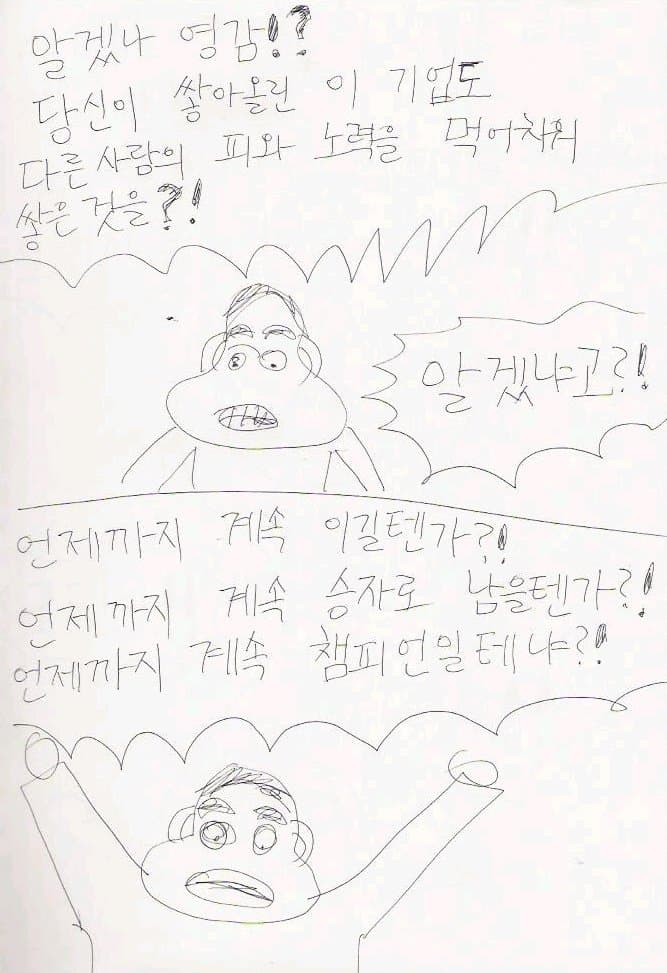 알겠나 영감!?
당신이 쌓아올린 이 기업도
다른사람의 피와 노력을 먹어치워
쌓은것을?!
알겠냐고?!
언제까지 계속 이길텐가?!
언제까지 계속 승자로 남을텐가?!
언제까지 계속 챔피언일테냐?!